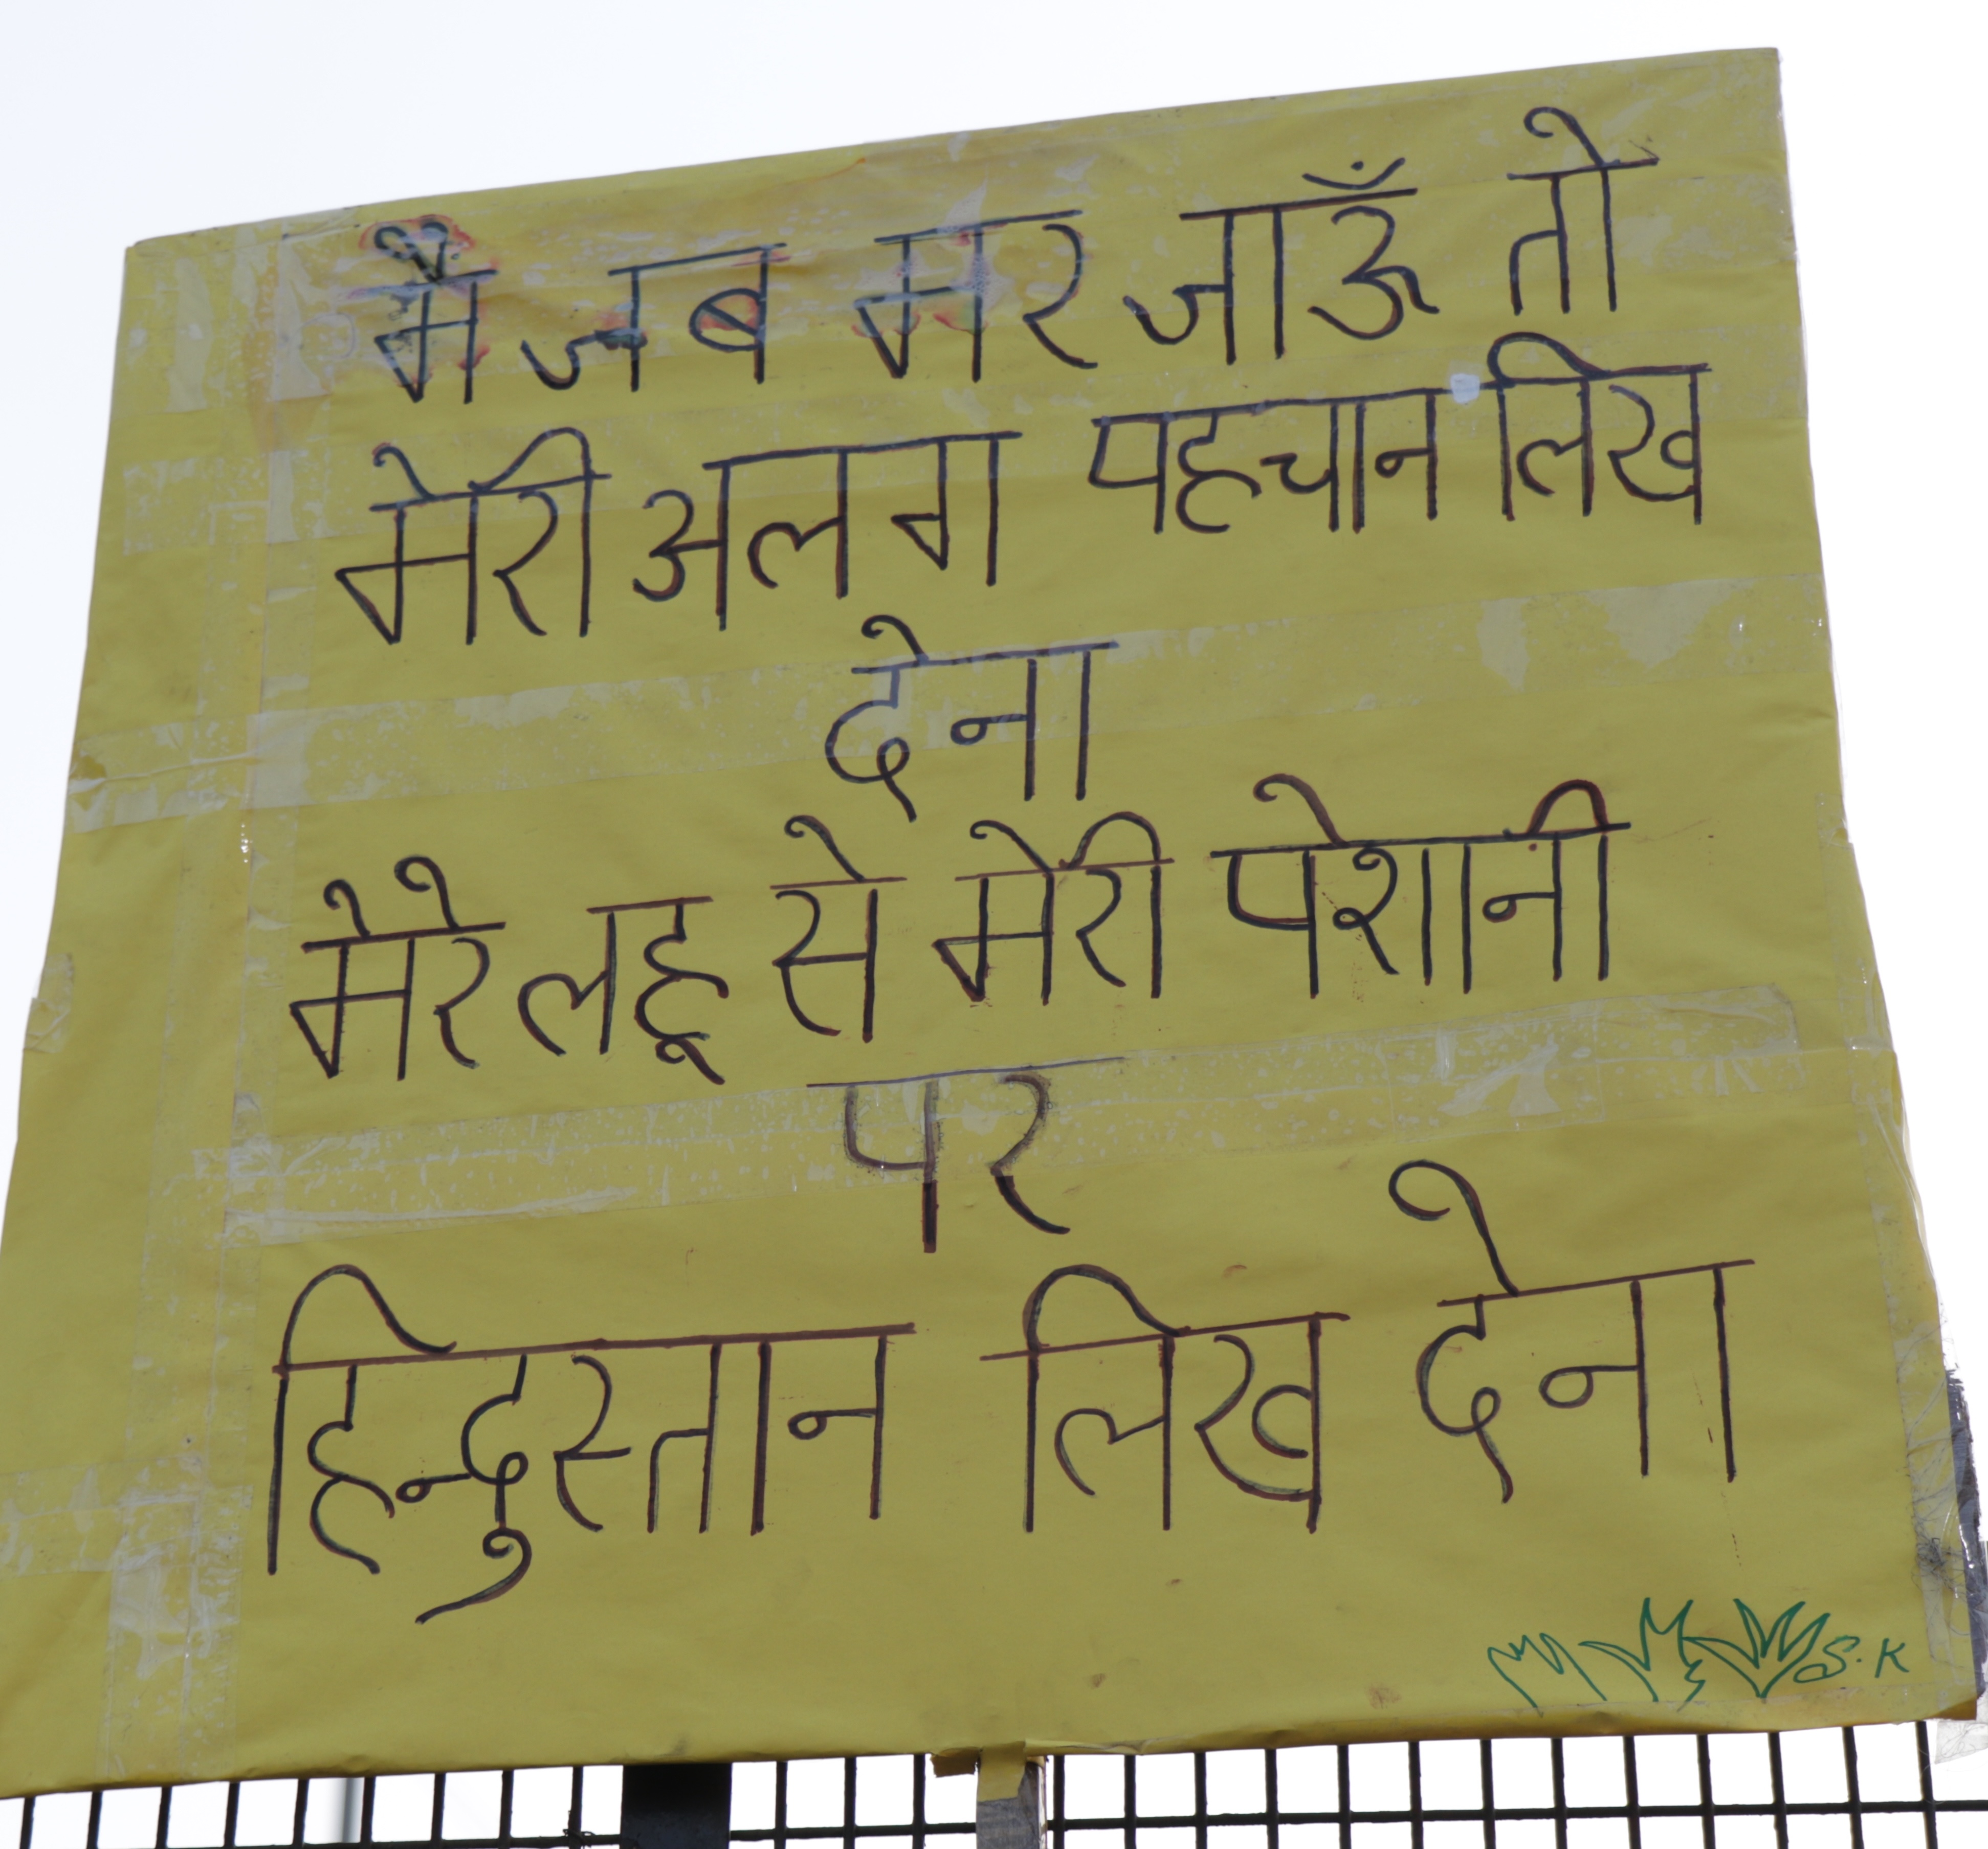 मै जब मर जाऊँ तो
मेरी अलग पहचान लिख
देना
मेरे लहू से मेरी पेशानी
पर
हिन्दुस्तान लिख देना
S.K